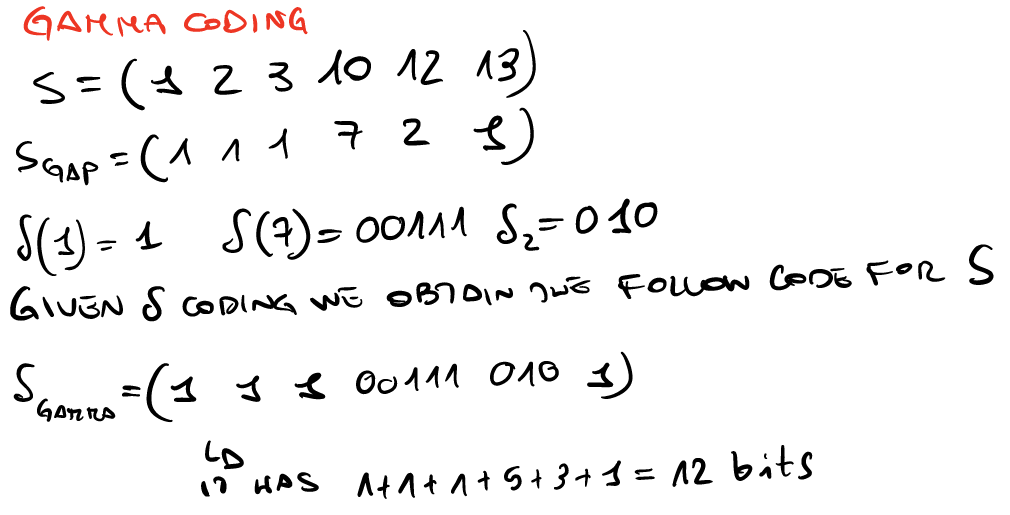 GAMMA CODING
S = (1 2 3 10 12 13)
S GAP = (1 1 1 7 2 1)
δ(1) = 1 δ(7) = 00111 δ₂ = 010
GIVEN δ CODING WE OBTAIN THE FOLLOW CODE FOR S
S GAMMA = (1 1 1 00111 010 1)
IT HAS 1+1+1+5+3+1 = 12 bits